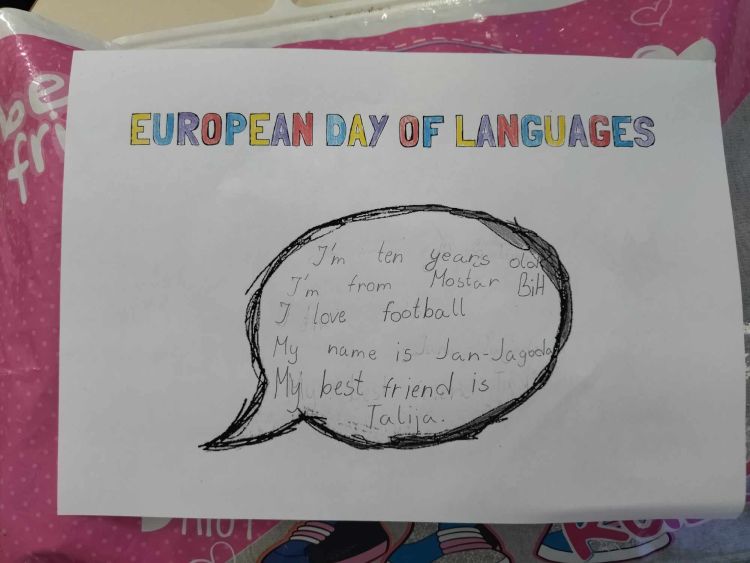 be
fri
EUROPEAN DAY OF LANGUAGES
I'm ten years old
I'm from Mostar BiH
I love football
My name is Jan-Jagoda
My best friend is
Talija.